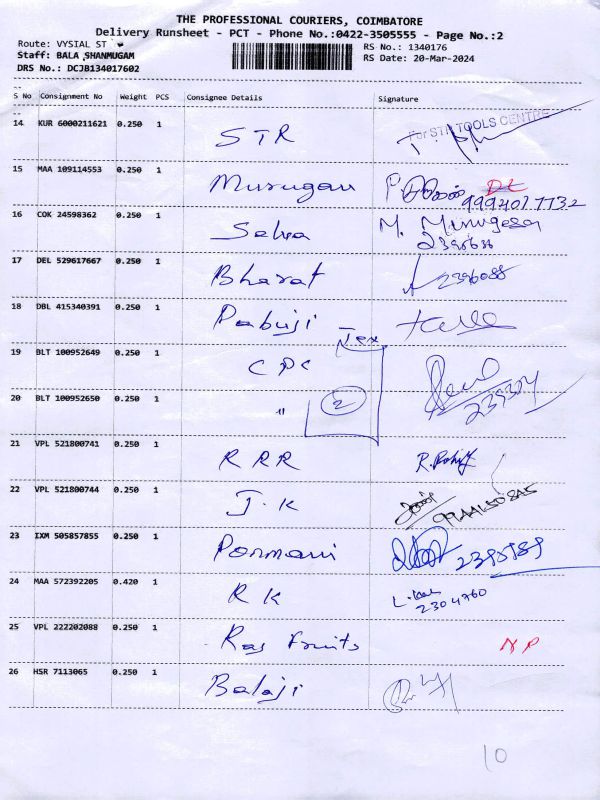 THE PROFESSIONAL COURIERS, COIMBATORE
Delivery Runsheet - PCT - Phone No.:0422-3505555 - Page No.:2
Route: VYSIAL ST
RS No.: 1340176
Staff: BALA SHANMUGAM
RS Date: 20-Mar-2024
DRS No.: DCJB134017602
S No Consignment No Weight PCS Consignee Details Signature
14 KUR 6000211621 0.250 1 STR For STR TOOLS CENTRE
15 MAA 109114553 0.250 1 Murugan
16 COK 24598362 0.250 1 Selva M. Murugesan
17 DEL 529617667 0.250 1 Bharat 2396088
18 DBL 415340391 0.250 1 Pabuji
19 BLT 100952649 0.250 1 CPC
20 BLT 100952650 0.250 1 " 2
21 VPL 521800741 0.250 1 RRR
22 VPL 521800744 0.250 1 J.K
23 IXM 505857855 0.250 1 Ponmani
24 MAA 572392205 0.420 1 RK
2304760
25 VPL 222202088 0.250 1 Raj Fruits NP
26 HSR 7113065 0.250 1 Balaji
10